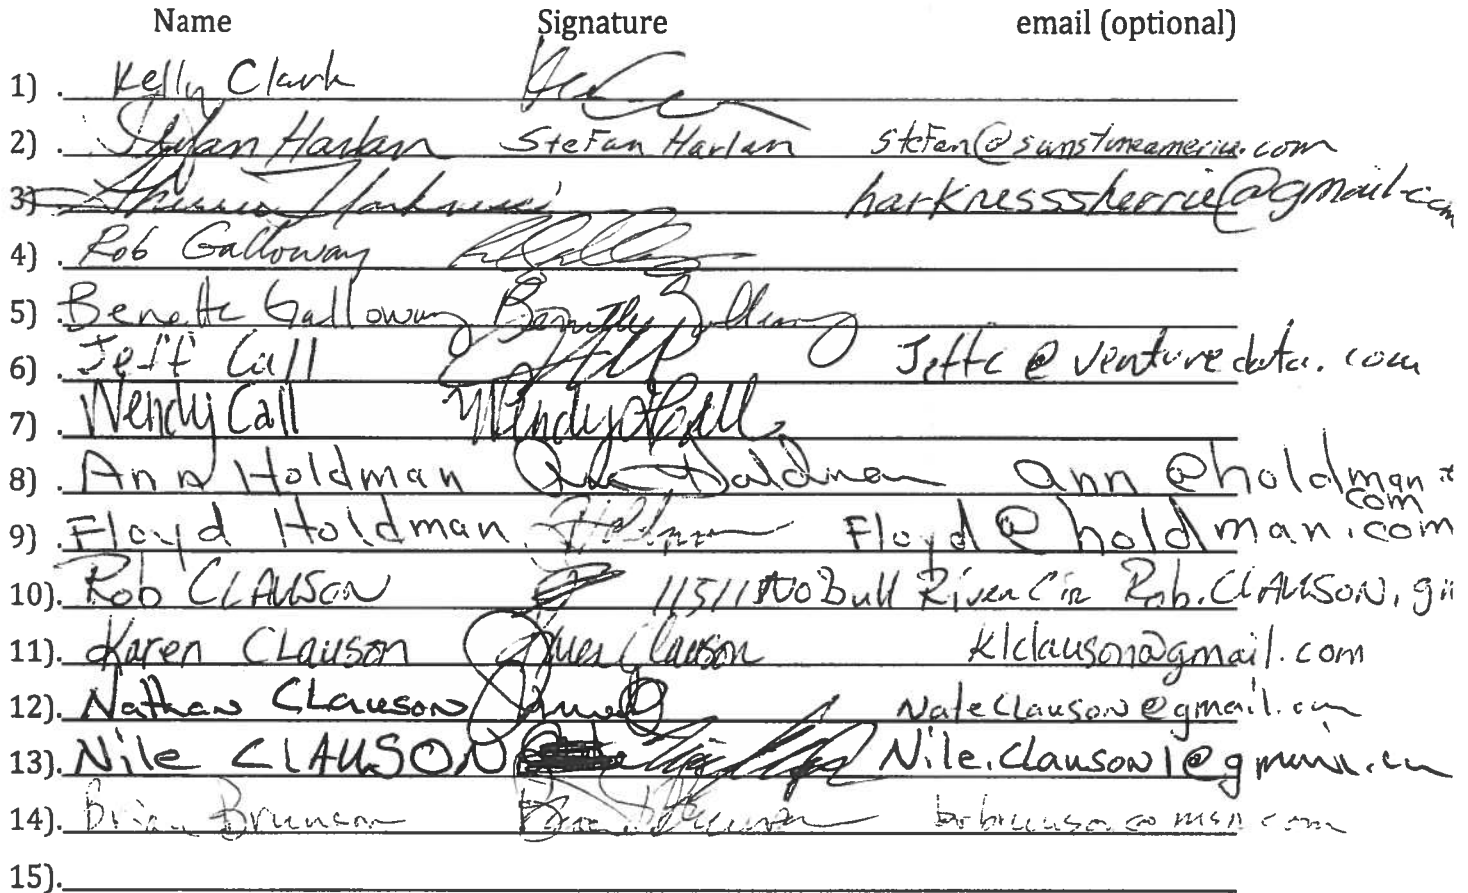 Name Signature email (optional)
1) . Kelly Clark
2) . Stefan Harlan Stefan Harlan stefan@sunstoneamerica.com
3) harknesssherrie@gmail.com
4) . Rob Galloway
5) . Galloway
6) . Jeff Call Jeffc@venturedata.com
7) . Wendy Call Wendy Call
8) . Ann Holdman Holdman ann@holdman.
com
9) . Floyd Holdman Floyd@holdman.com
10). Rob CLAUSON 11511 No Bull River Cir Rob.CLAUSON, gm
11). Karen Clauson Karen Clauson klclauson@gmail.com
12). Nathan Clauson Nateclauson@gmail.com
13). Nile CLAUSON Nile.Clauson1@gmail.com
14). Brian Brunson
15).